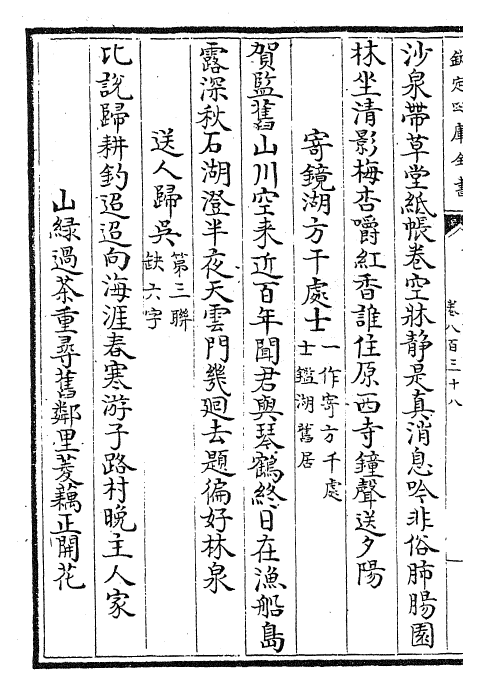 欽定四庫全書
卷八百三十八
沙泉帶草堂紙帳卷空牀静是真消息吟非俗肺腸園
林坐清影梅杏嚼紅香誰住原西寺鐘聲送夕陽
寄鏡湖方干處士一作寄方干處
士鑑湖舊居
賀監舊山川空来近百年聞君與琴鶴終日在漁船島
露深秋石湖澄半夜天雲門幾廻去題徧好林泉
送人歸吳第三聯
缺六字
比說歸耕釣迢迢向海涯春寒游子路村晚主人家
山緑過茶重尋舊鄰里菱藕正開花